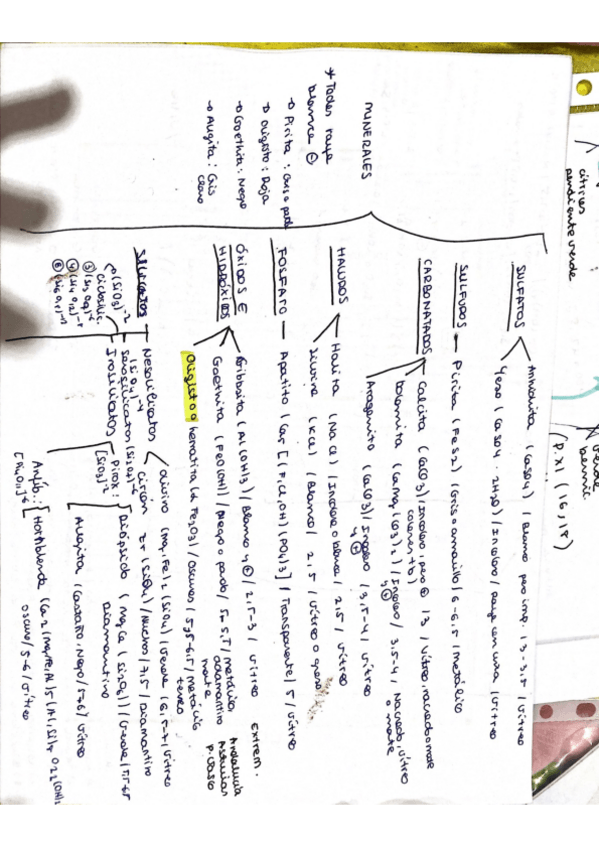 MINERALES
* Todos raya blanca ⊖
→ Pirita : Gris o pardo
→ Oligisto : Roja
→ Goethita : Negro
→ Augita : Gris claro
SULFATOS
Anhidrita (CaSO4) / Blanco pero imp. / 3-3.5 / Vítreo
Yeso (CaSO4 · 2H2O) / Incoloro / Raya con uña / Vítreo
SULFUROS — Pirita (FeS2) / Gris o amarillo / 6-6.5 / metálico
CARBONATADOS
Calcita (CaCO3) / Incoloro, pero ⊕ / 3 / Vítreo, nacarado o mate
Dolomita (Ca,Mg (CO3)2) / Incoloro / 3.5-4 / Nacrado, vítreo o mate
Aragonito (CaCO3) / Incoloro / 3.5-4 / Vítreo
HALUROS
Halita (NaCl) / Incoloro o blanco / 2,5 / Vítreo
Silvina (KCl) / Blanco / 2,5 / Vítreo o graso
FOSFATO — Apatito (Ca5 [(F,Cl,OH) (PO4)3] / Transparente / 5 / Vítreo
ÓXIDOS E HIDRÓXIDOS
Gibbsita (Al(OH)3) / Blanco / 2,5-3 / Vítreo
Goethita (FeO(OH)) / Negro o pardo / 5-5,5 / metálico, adamantino mate
Oligisto o hematita (α Fe2O3) / Oscuros / 5,5-6.5 / metálico terreo
extrem.
Andalucía
Asturias
P. Vasco
SILICATOS
Nesosilicatos (SiO4)-4
Olivino (Mg,Fe)2 (SiO4) / Verde / 6,5-7 / Vítreo
Circón Zr (SiO4) / Muchos / 7,5 / Diamantino
Sorosilicatos (Si2O7)-6
Inosilicatos
Pirox: [SiO3]-2
Diópsido (MgCa (Si2O6)) / Verde / 5.5-6.5 Diamantino
Augita (Castaño, Negro / 5-6) Vítreo
Anfíb.:
Hornblenda
oscuro / 5-6 / Vítreo
Ciclosilic.
(SiO3)-2
citries
pendiente verde
verde
(P.XI (16,18)